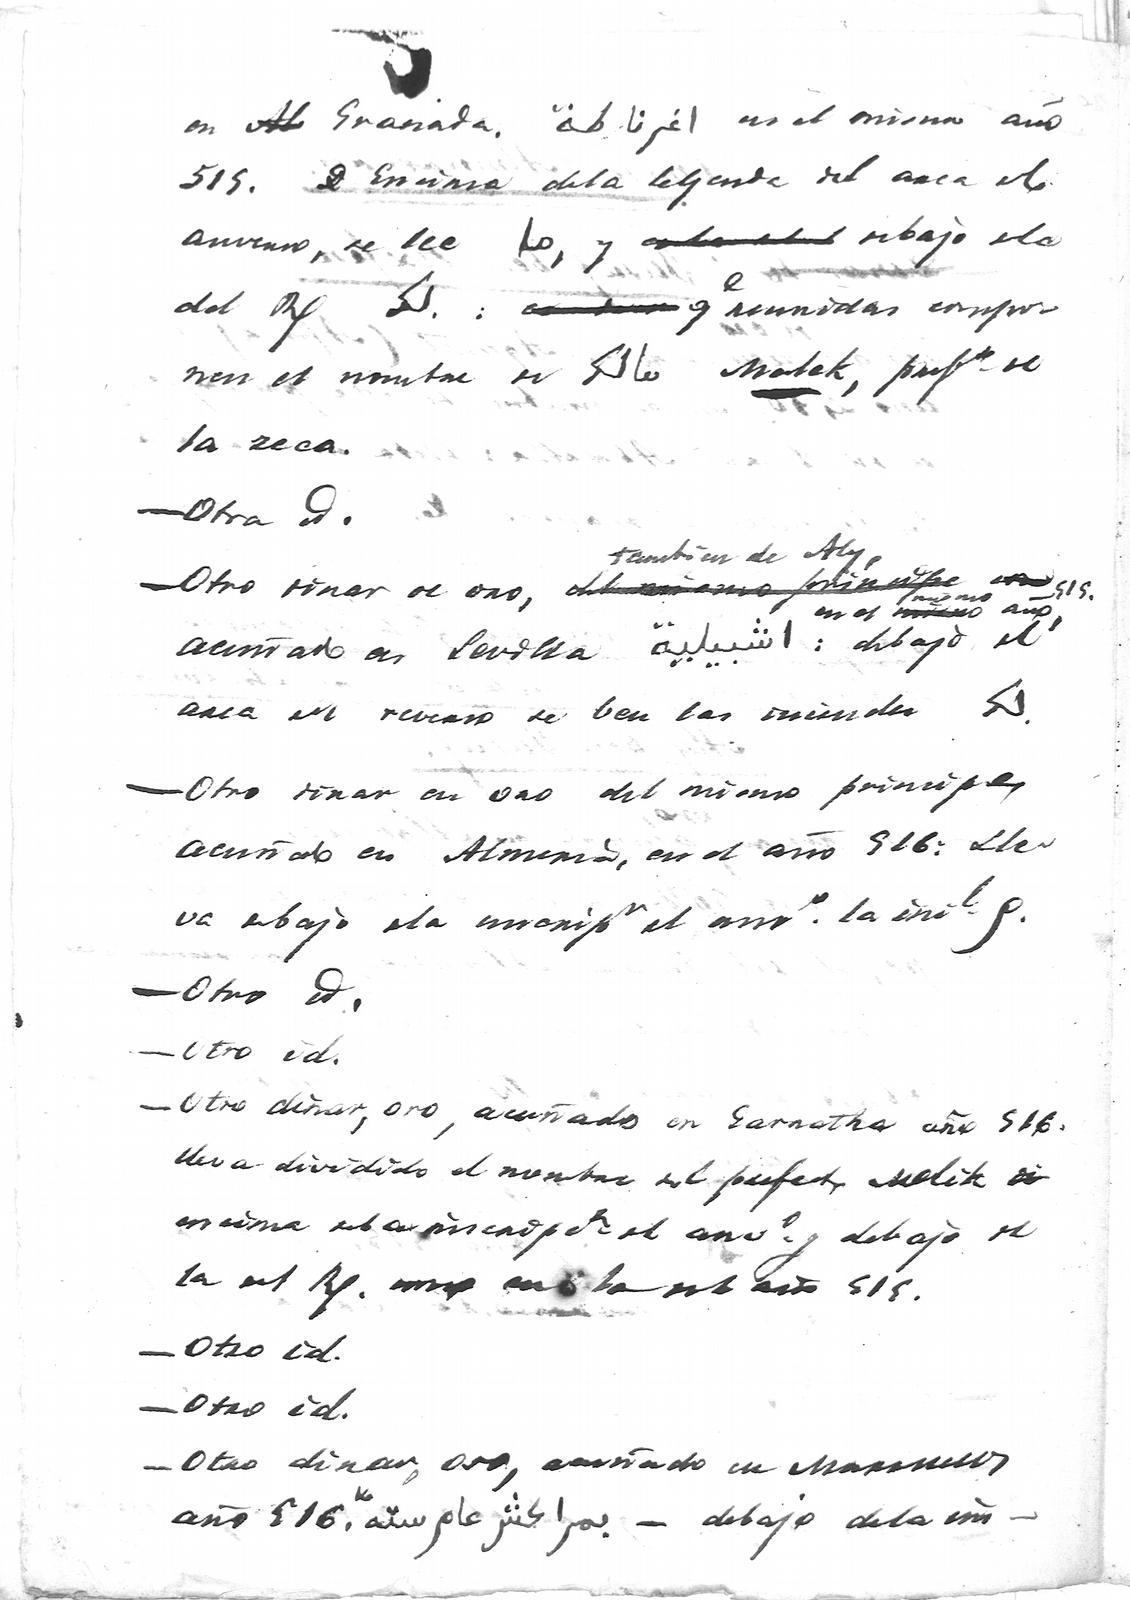 en Al Granada. اغرناطة en el mismo año
515. Encima dela leyenda del area del
anverso, se lee ما, y debajo dela
del Rº لك. : q.e reunidas compo-
nen el nombre de مالك Malek, prefto de
la zeca.
—Otra id.
tambien de Aly,
—Otro dinar de oro, del mismo principe 515.
en el mismo año,
acuñado en Sevilla اشبيلية : debajo del
area del reverso se ven las iniciales لك.
—Otro dinar en oro del mismo principe,
acuñado en Almeria, en el año 516: Lle-
va debajo dela inscripn del anvo. la inil م.
—Otro id.
—Otro id.
—Otro dinar, oro, acuñado en Garnatha año 516.
lleva dividido el nombre del prefecto Melik
encima dela inscripcn del anvo. y debajo de
la del Rº. la del año 515.
—Otro id.
—Otro id.
—Otro dinar, oro, acuñado en Marruecos
año 516. بمراكش عام ستة — debajo dela ins-